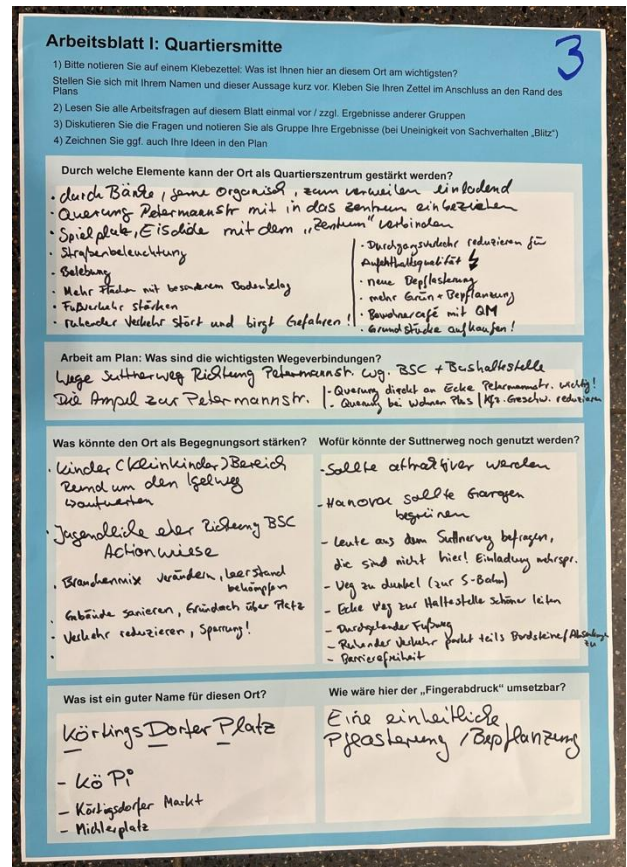 Arbeitsblatt I: Quartiersmitte
3
1) Bitte notieren Sie auf einem Klebezettel: Was ist Ihnen hier an diesem Ort am wichtigsten?
Stellen Sie sich mit Ihrem Namen und dieser Aussage kurz vor. Kleben Sie Ihren Zettel im Anschluss an den Rand des
Plans
2) Lesen Sie alle Arbeitsfragen auf diesem Blatt einmal vor / zzgl. Ergebnisse anderer Gruppen
3) Diskutieren Sie die Fragen und notieren Sie als Gruppe Ihre Ergebnisse (bei Uneinigkeit von Sachverhalten „Blitz")
4) Zeichnen Sie ggf. auch Ihre Ideen in den Plan
Durch welche Elemente kann der Ort als Quartierszentrum gestärkt werden?
· durch Bänke, gerne organisch, zum verweilen einladend
· Querung Petermannstr mit in das Zentrum einbeziehen
· Spielplatz, Eisdiele mit dem „Zentrum" verbinden
· Straßenbeleuchtung
· Belebung
· Mehr Flächen mit besonderem Bodenbelag
· Fußverkehr stärken
· ruhender Verkehr stört und birgt Gefahren!
· Durchgangsverkehr reduzieren für
Aufenthaltsqualität
· neue Bepflasterung
· mehr Grün + Bepflanzung
· Bewohnercafé mit QM
· Grundstücke aufkaufen!
Arbeit am Plan: Was sind die wichtigsten Wegeverbindungen?
Wege Suttnerweg Richtung Petermannstr. wg. BSC + Bushaltestelle
Die Ampel zur Petermannstr.
- Querung direkt an Ecke Petermannstr. wichtig!
- Querung bei Wohnen Plus / Kfz-Geschw. reduzieren
Was könnte den Ort als Begegnungsort stärken?
· Kinder (Kleinkinder) Bereich
Rund um den Igelweg
aufwerten
· Jugendliche eher Richtung BSC
Actionwiese
· Branchenmix verändern, Leerstand
bekämpfen
· Gebäude sanieren, Gründach über Platz
· Verkehr reduzieren, Sperrung!
·
Wofür könnte der Suttnerweg noch genutzt werden?
- Sollte attraktiver werden
- Hanova sollte Garagen
begrünen
- Leute aus dem Suttnerweg befragen,
die sind nicht hier! Einladung mehrspr.
- Weg zu dunkel (zur S-Bahn)
- Ecke Weg zur Haltestelle schöner leiten
- Durchgehender Fußweg
- Ruhender Verkehr parkt teils Bordsteine/
zu
- Barrierefreiheit
Was ist ein guter Name für diesen Ort?
KörtingsDorfer Platz
- Kö Pi
- Körtingsdorfer Markt
- Michlerplatz
Wie wäre hier der „Fingerabdruck" umsetzbar?
Eine einheitliche
Pflasterung / Bepflanzung